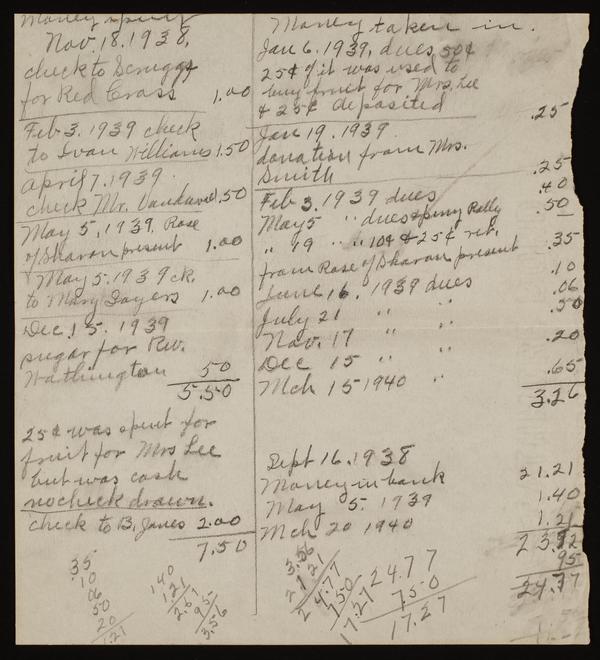 Money spent
Nov. 18. 1938,
check to Scruggs
for Red Cross 1.00
Feb 3. 1939 check
to Ivan Williams 1.50
april 7. 1939.
check Mr. Vandavid .50
May 5, 1939, Rose
of Sharon present 1.00
May 5. 1939 ck.
to Mary Sayers 1.00
Dec. 15. 1939
sugar for Rev.
Wathington 50
5.50
25¢ was spent for
fruit for Mrs Lee
but was cash
no check drawn.
check to B. Janes 2.00
7.50
35
.10
06
50
20
1.21
140
121
2.61
95
3.56
Money taken in.
Jan 6. 1939, dues, 50¢
25¢ of it was used to
buy fruit for Mrs. Lee
& 25¢ deposited .25
Jan 19. 1939.
donation from Mrs.
Smith .25
Feb 3. 1939 dues .40
May 5 " dues & penny Rally .50
" 19 " " 10¢ & 25¢ ret.
from Rose of Sharon present .35
June 16. 1939 dues .10
July 21 " " .06
Nov. 17 " " .50
Dec 15 " " .20
Mch 15 1940 " .65
3.26
Sept 16. 1938
Money in bank 21.21
May 5. 1939 1.40
Mch 20 1940 1.21
23.82
95
24.77
3.56
21 21
24.77
7 50
17.27
24.77
7 50
17.27